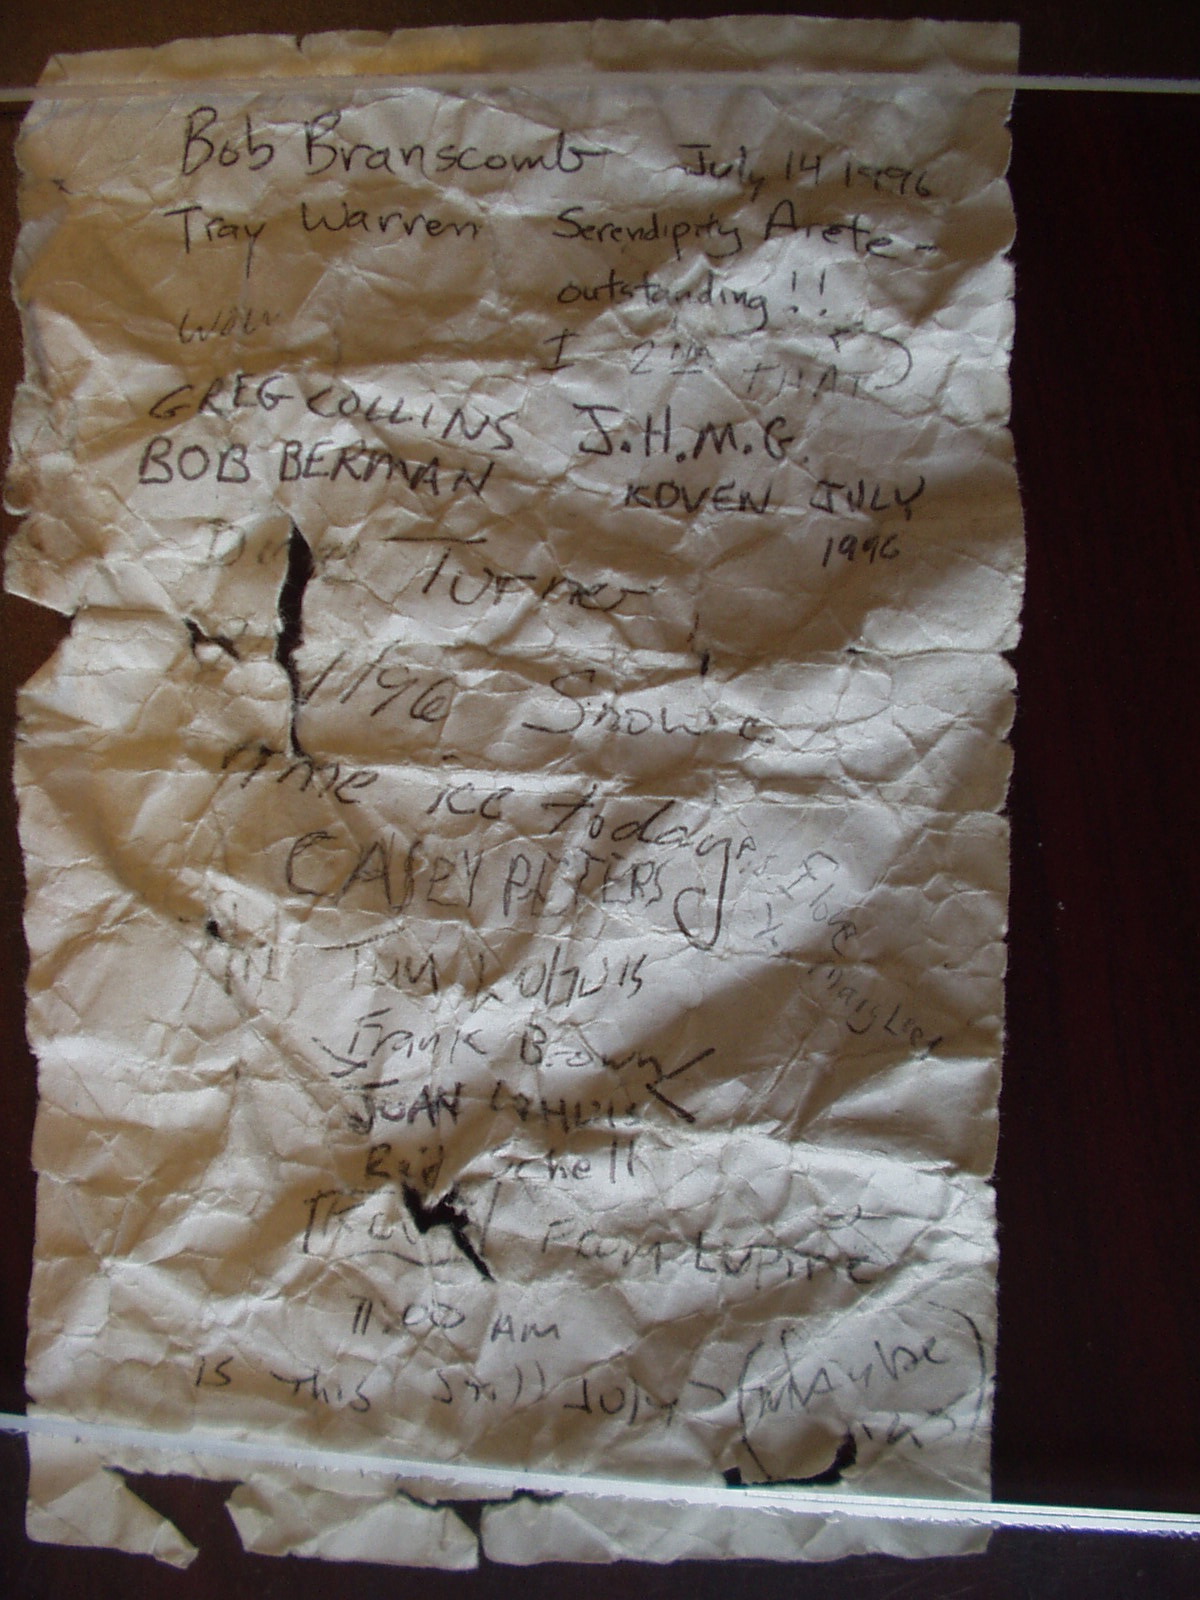 Bob Branscomb July 14 1996
Tray Warren Serendipity Arete -
outstanding!!
wow
I 2nd THAT
GREG COLLINS J.H.M.G.
BOB BERMAN KOVEN JULY
1996
Turner
1/96 Snow &
rime ice today
CASEY PETERS
I love
Frank Brown
JUAN
Reid Schell
From Lupine
11:00 AM
is this still July?
(maybe